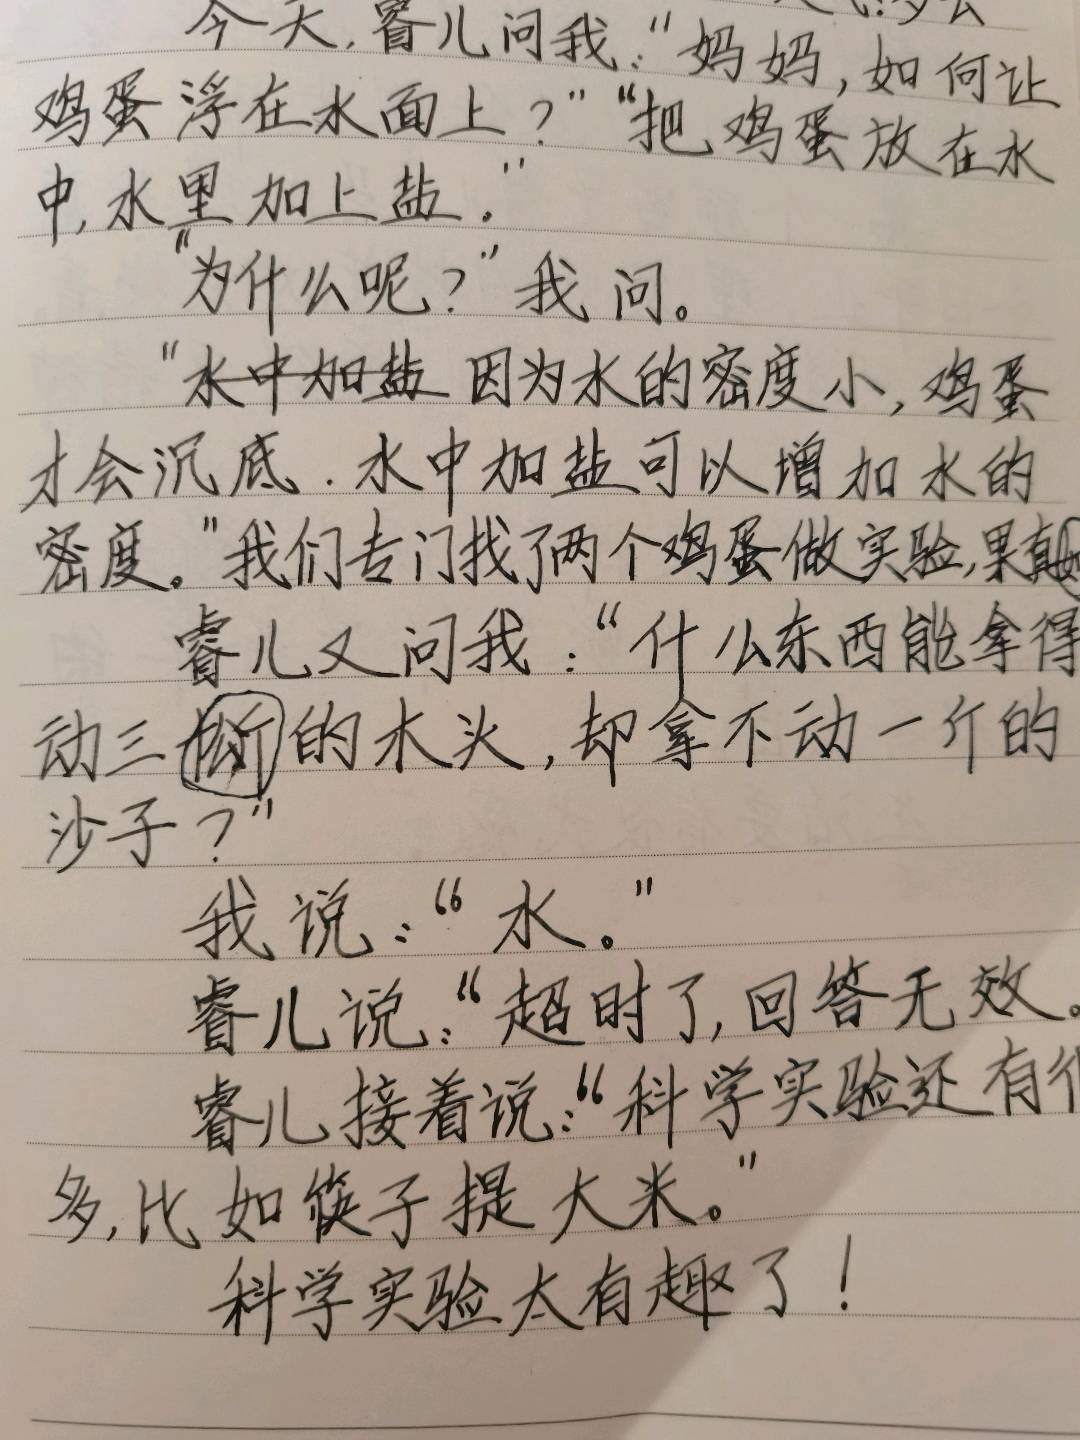 今天,睿儿问我:"妈妈,如何让
鸡蛋浮在水面上?""把鸡蛋放在水
中,水里加上盐."
"为什么呢?"我问。
"水中加盐因为水的密度小,鸡蛋
才会沉底.水中加盐可以增加水的
密度。"我们专门找了两个鸡蛋做实验,果真
睿儿又问我:"什么东西能拿得
动三斤的木头,却拿不动一斤的
沙子?"
我说:"水。"
睿儿说:"超时了,回答无效。
睿儿接着说:"科学实验还有很
多,比如筷子提大米。"
科学实验太有趣了!